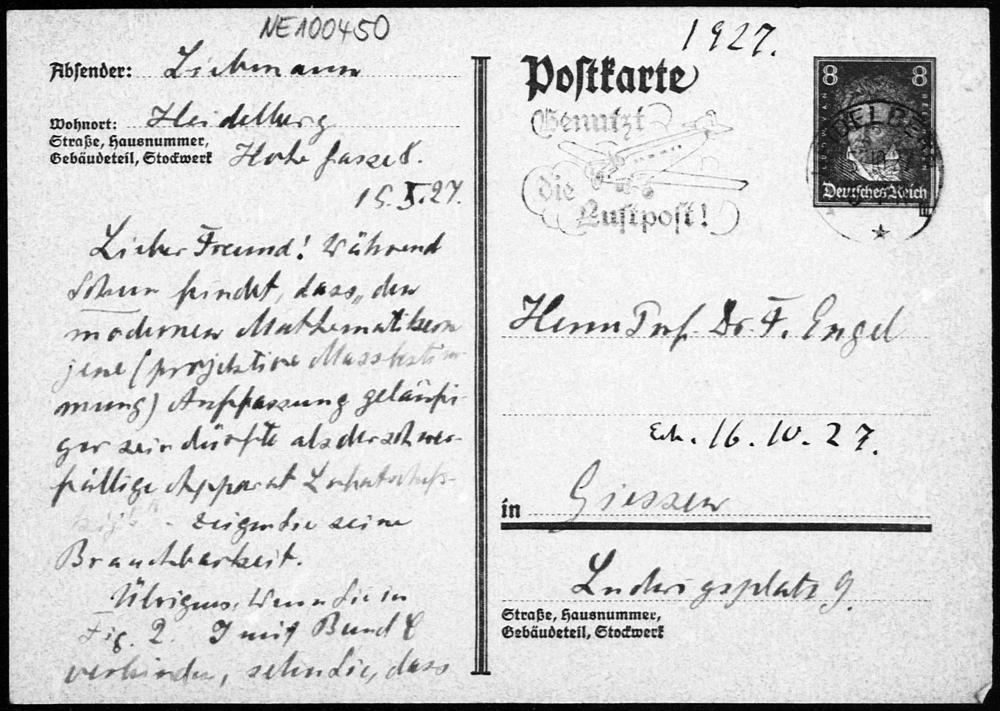 NE100450
1927.
Absender: Liebmann
Wohnort: Heidelberg
Straße, Hausnummer,
Gebäudeteil, Stockwerk
Hohe Gasse 8.
15.X.27.
Lieber Freund! Während
Schur findet, dass „den
modernen Mathematikern
jene (projektive Massbestim-
mung) Auffassung geläufi-
ger sein dürfte als der schwer-
fällige Apparat Lobatschefs-
kijs" - zeigen Sie seine
Brauchbarkeit.
Übrigens, wenn Sie in
Fig. 2. J mit B und C
verbinden, sehen Sie, dass
Postkarte
Benutzt
die
Luftpost!
8 8
Deutsches Reich
Herrn Prof. Dr. F. Engel
Erh. 16.10.27.
in Giessen
Ludwigsplatz 9.
Straße, Hausnummer,
Gebäudeteil, Stockwerk